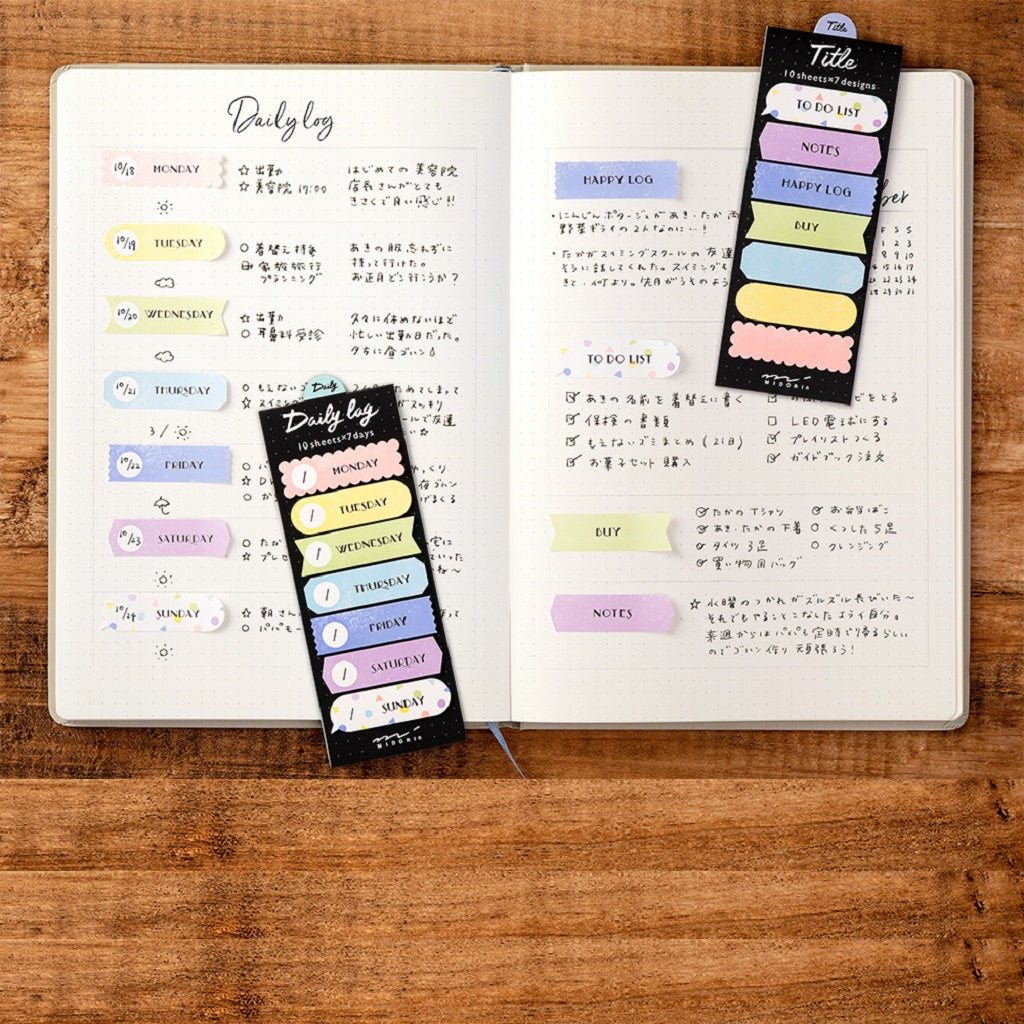 Daily log
10/18 MONDAY
☆ 出勤
☆ 美容院 17:00
はじめての 美容院
店長さんがとても
きさくで良い感じ!!
10/19 TUESDAY
○ 着替え持参
家族旅行
プランニング
あきの服 忘れずに
持って行けた。
お正月どこ行こうか?
10/20 WEDNESDAY
☆ 出勤
○ 耳鼻科受診
久々に休めないほど
忙しい出勤日だった。
夕方に昼ゴハン
10/21 THURSDAY
○ もえないゴ
ためてしまって
☆ スイミン
がスッキリ
ルで友達
3 /
10/22 FRIDAY
☆
○
っくり。
夜ゴハン
げまくる
10/23 SATURDAY
○ たか
☆ プレゼ
いった
ね〜
10/24 SUNDAY
☆ 朝 さん
○ パパモー
って
Daily
Daily log
10sheets×7days
/ MONDAY
/ TUESDAY
/ WEDNESDAY
/ THURSDAY
/ FRIDAY
/ SATURDAY
/ SUNDAY
MIDORI
HAPPY LOG
・にんじんポタージュがあき・たか 両
野菜ギライの2人なのに…!
・たかがスイミングスクールの友達
そうに話してくれた。スイミングも
きと、何より。先月がうそのよう
TO DO LIST
☑ あきの名前を着替えに書く
☑ 保検の書類
☑ もえないゴミまとめ (21日)
☑ お菓子セット購入
をとる
□ LED電球にする
☑ プレイリストつくる
☑ ガイドブック注文
BUY
たかのTシャツ
あき・たかの下着
タイツ 3足
買い物用バッグ
お弁当ばこ
○ くつした5足
○ クレンジング
NOTES
☆ 水曜のつかれがズルズル長びいた〜
それでもやることこなした エライ自分。
来週からはパパも定時で帰るらしい
のでゴハン作り 頑張ろう!
ber
F S S
1 2 3
8 9 10
14 15 16 17
22 23 24
28 29 30 31
Title
Title
10sheets×7designs
TO DO LIST
NOTES
HAPPY LOG
BUY
MIDORI